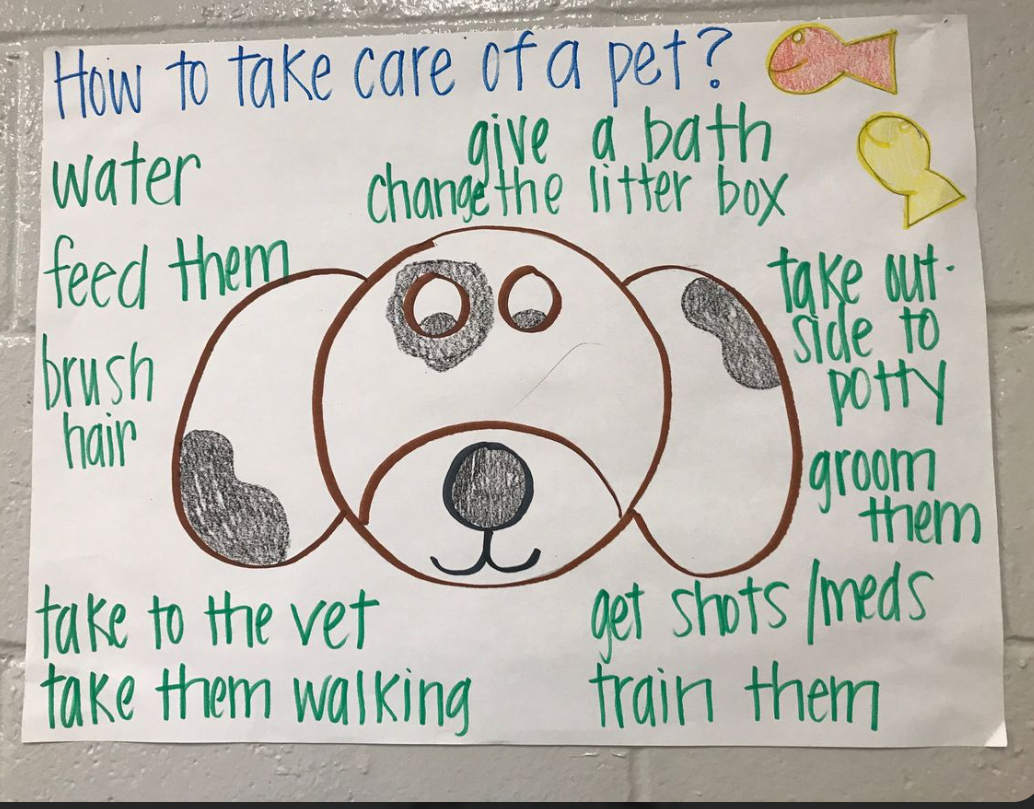 How to take care of a pet?
give a bath
change the litter box
water
feed them
brush
hair
take out-
side to
potty
groom
them
take to the vet
take them walking
get shots/meds
train them